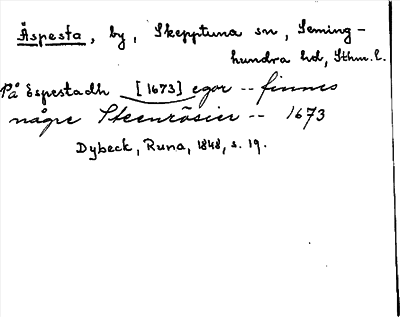 Äspesta, by, Skepptuna sn, Seming-
hundra hd, Sthm. l.
På Espestadh [1673] egor -- finnes
någre Steenrösier -- 1673
Dybeck, Runa, 1848, s. 19.